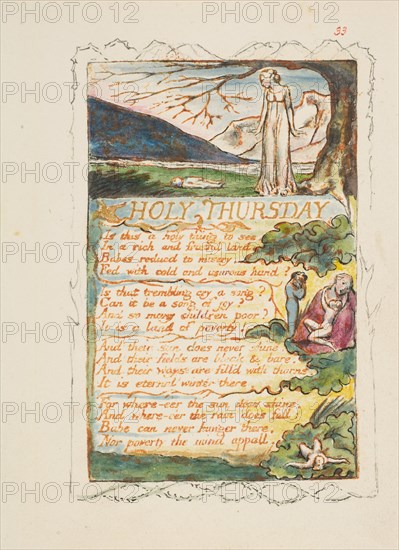 33
PHOTO12 PHOTO12 PHOTO12
PHOTO12 PHOTO12 PHOTO12
HOLY THURSDAY
Is this a holy thing to see,
In a rich and fruitful land,
Babes reduced to misery,
Fed with cold and usurous hand?
Is that trembling cry a song?
Can it be a song of joy?
And so many children poor?
It is a land of poverty!
And their sun does never shine.
And their fields are bleak & bare.
And their ways are fill'd with thorns.
It is eternal winter there.
For where-e'er the sun does shine,
And where-e'er the rain does fall:
Babe can never hunger there,
Nor poverty the mind appall.
PHOTO12 PHOTO12 PHOTO12